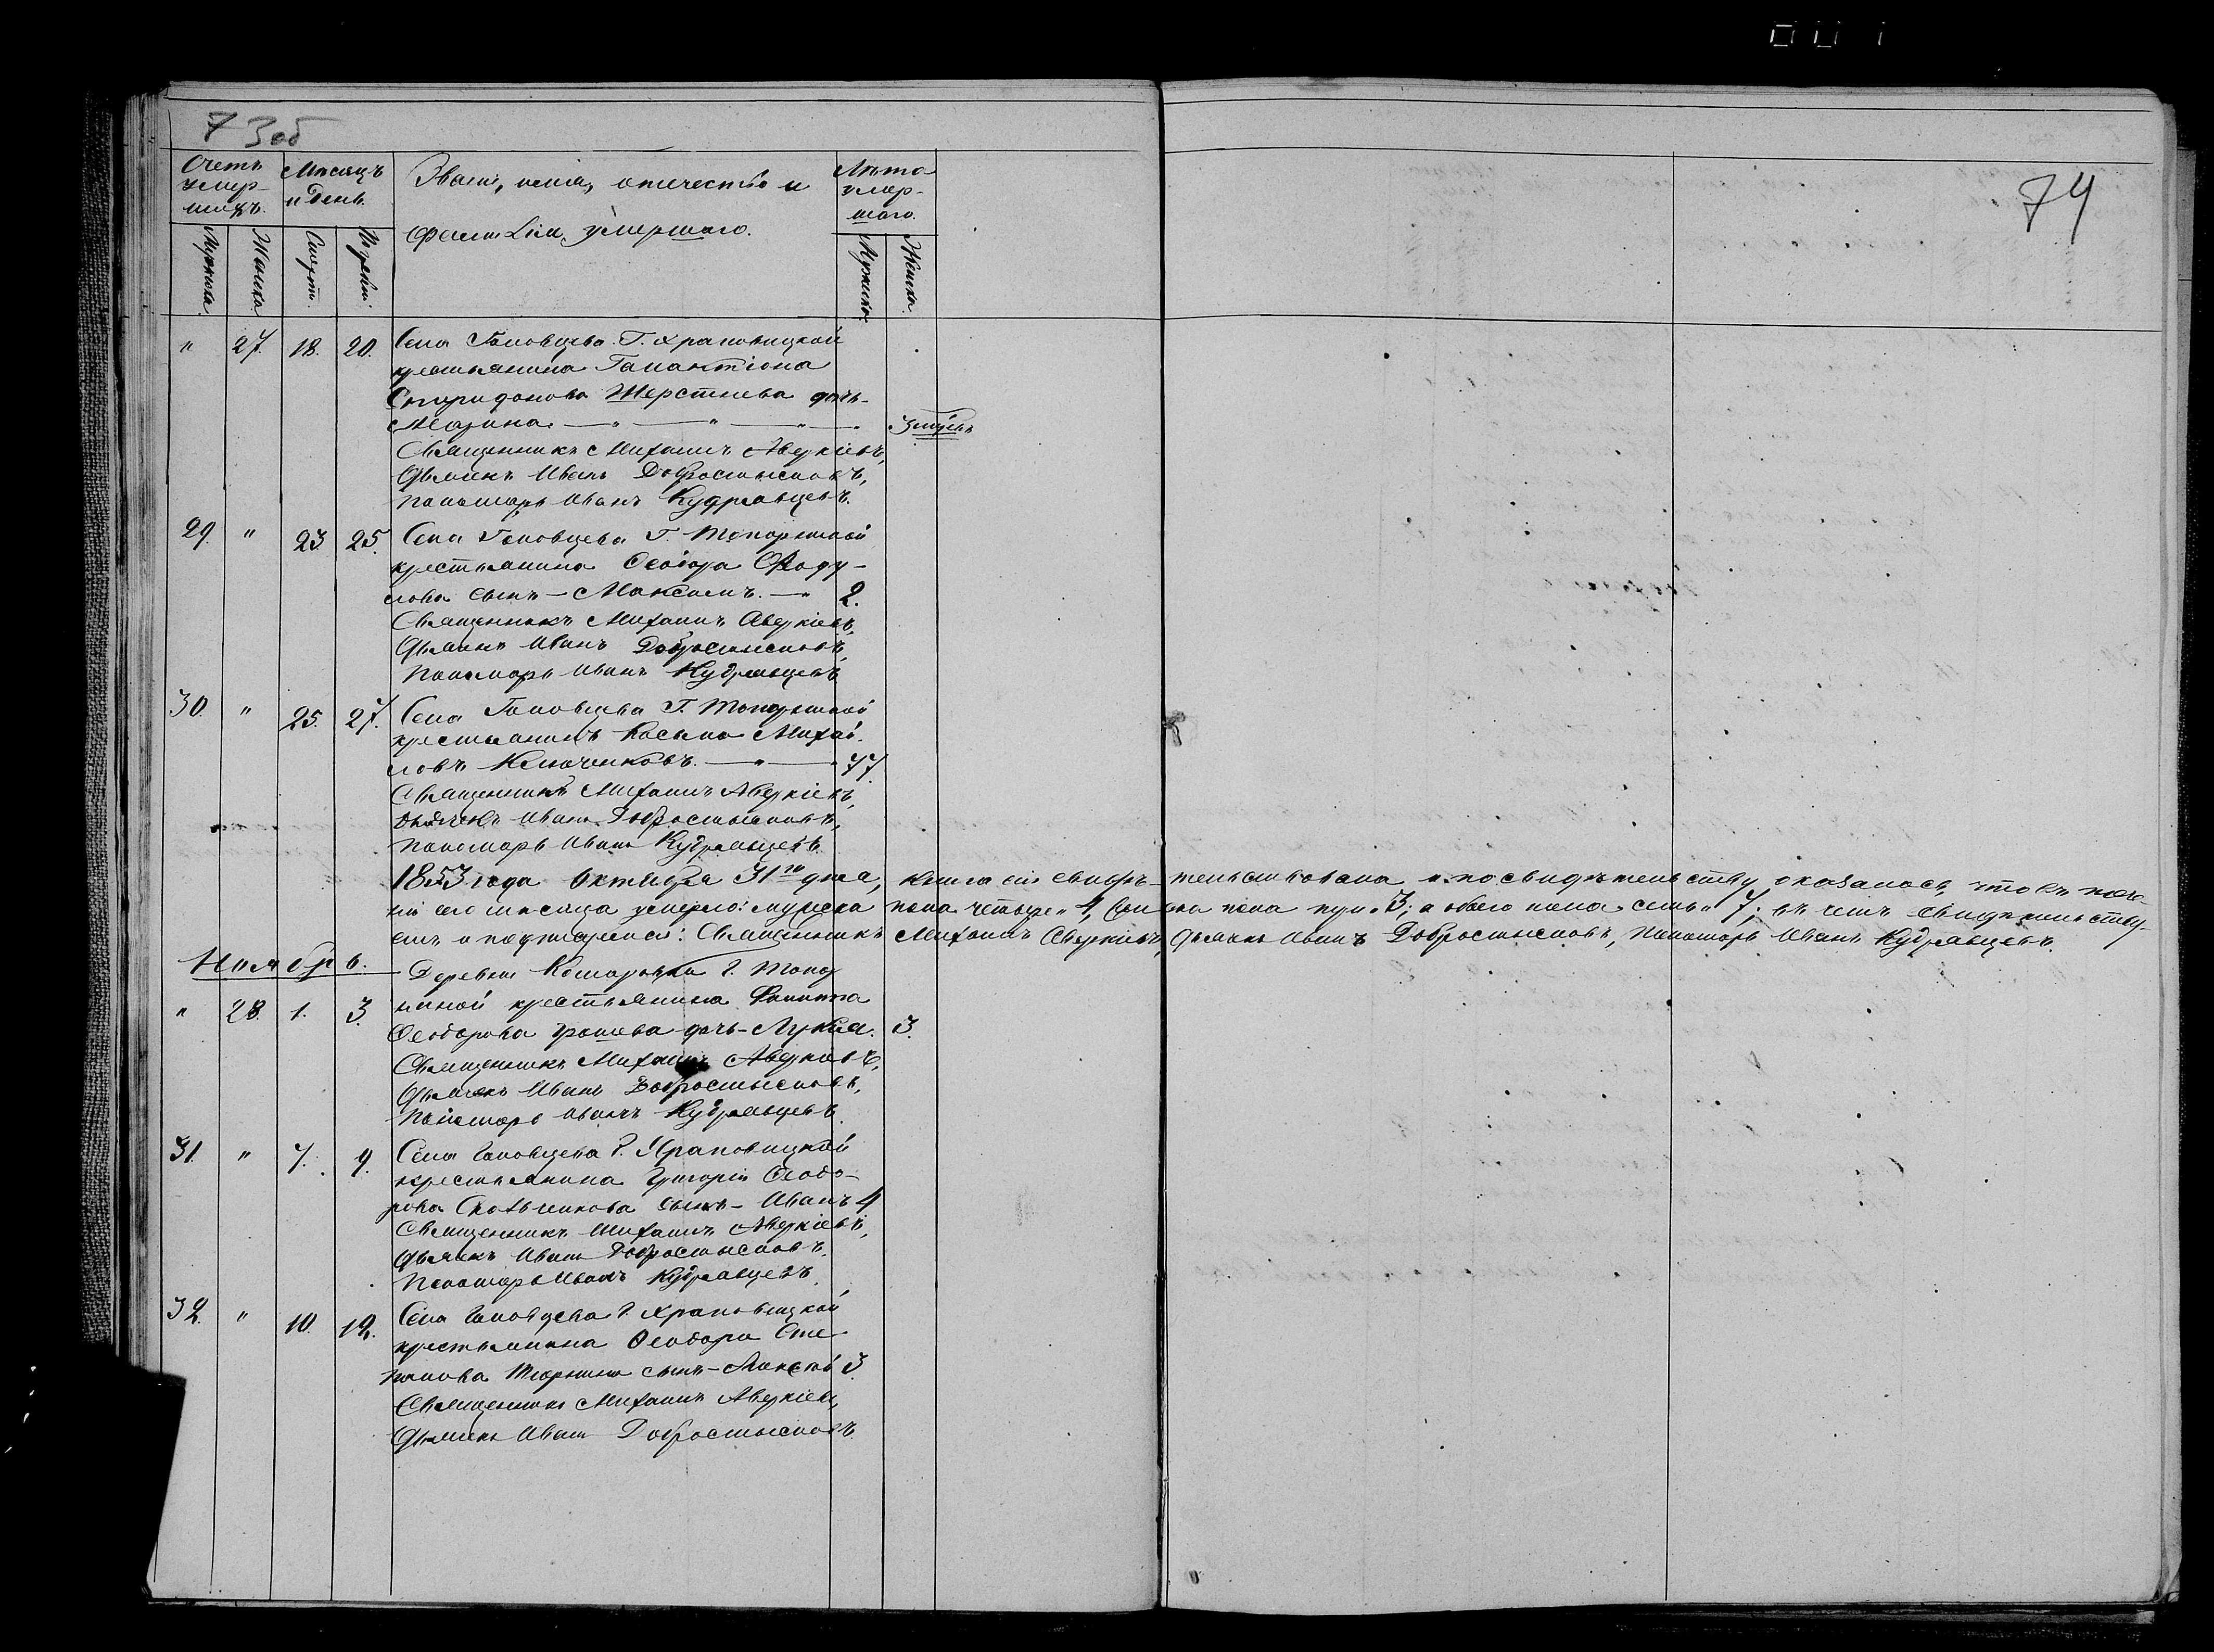 73об
74
Счетъ умер-шихъ.
Мѣсяцъ и День.
Званіе, имя, отечество и
фамилія умершаго.
Лѣта умер-шаго.
Мужеска.
Женска.
Смерти.
Погребен.
Мужеска
Женска.
" 27. 18. 20. Села Головцева Г. Храповицкой
крестьянина Галактіона
Спиридонова Шерстнева дочь
Марина — " — " — " — 3 мѣсяц.
Священникъ Михаилъ Аверкіевъ,
Дьячекъ Иванъ Добросмысловъ,
Пономарь Иванъ Кудрявцевъ.
29. " 23 25. Села Головцева Г.
крестьянина Ѳеодора
лова сынъ — Максимъ. — " 2.
Священникъ Михаилъ Аверкіевъ,
Дьячекъ Иванъ Добросмысловъ,
Пономарь Иванъ Кудрявцевъ
30. " 25. 27. Села Головцева Г.
крестьянинъ Косьма Михай-
ловъ Ключниковъ. — " — 77.
Священникъ Михаилъ Аверкіевъ,
Дьячекъ Иванъ Добросмысловъ,
Пономарь Иванъ Кудрявцевъ
1853 года Октября 31го дня, книга сія свидѣ-тельствована и по свидѣтельству оказалось, что въ тече-
ніи сего мѣсяца умерло: мужеска пола четыре "4", женска пола три "3"; а обоего пола семь "7"; въ чемъ свидѣтельству-
емъ и подписуемся: Священникъ Михаилъ Аверкіевъ, Дьячекъ Иванъ Добросмысловъ, Пономарь Иванъ Кудрявцевъ.
Ноябрь. Деревни Комаровки Г.
" 28. 1. 3. ниной крестьянина Филиппа
Ѳеодорова дочь — Лукія. 3.
Священникъ Михаилъ Аверкіевъ,
Дьячекъ Иванъ Добросмысловъ,
Пономарь Иванъ Кудрявцевъ.
31. " 7. 9. Села Головцева Г. Храповицкой
крестьянина Григорія Ѳеодо-
рова сынъ — Иванъ 4
Священникъ Михаилъ Аверкіевъ,
Дьячекъ Иванъ Добросмысловъ.
Пономарь Иванъ Кудрявцевъ.
32. " 10. 12. Села Головцева Г. Храповицкой
крестьянина Ѳеодора Сте-
панова сынъ — Алексѣй 3.
Священникъ Михаилъ Аверкіевъ,
Дьячекъ Иванъ Добросмысловъ.